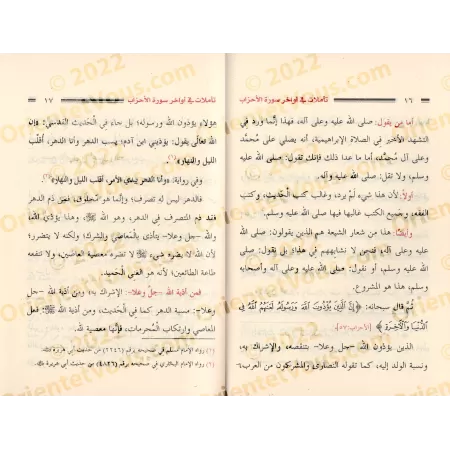 ١٦ تأملات في أواخر سورة الأحزاب
أما من يقول: صلى الله عليه وعلى آله، فهذا إنَّما ورد في
التشهد الأخير في الصلاة الإبراهيمية، أنه يصلي على محمَّد
وعلى آل محمَّد، أما ما عدا ذلك فإنك تقول: صلى الله عليه
وسلم، ولا تقول: صلى الله عليه وآله.
أولاً: لأن هذا شيء لَمْ يرد، وغالب كتب الْحَديث، وكتب
الفقه، وجميع الكتب غالبها فيها صلى الله عليه وسلم.
وأيضًا: هذا من شعار الشيعة هم الذين يقولون: صلى الله
عليه وعلى آله، فنحن لا نشابههم في هذا؛ بل نقول: صلى الله
عليه وسلم، أو نقول: صلى الله عليه وعلى آله وأصحابه
وسلم، هذا هو المشروع.
ثُمَّ قال سبحانه: ﴿إِنَّ الَّذِينَ يُؤْذُونَ اللَّهَ وَرَسُولَهُ لَعَنَهُمُ اللَّهُ فِي
الدُّنْيَا وَالْآخِرَةِ﴾ [الأحزاب:٥٧].
الذين يؤذون الله -جل وعلا- بتنقصه، والإشراك به،
ونسبة الولد إليه، كما تقوله النصارى والمشركون من العرب،
تأملات في أواخر سورة الأحزاب ١٧
هؤلاء يؤذون الله ورسوله؛ بل جاء في الْحَديث القدسي: «إن
الله تعالى يقول: يؤذيني ابن آدم؛ يسب الدهر وأنا الدهر، أُقَلِّب
الليل والنهار»(١).
وفي رواية: «وأنا الدهر بيدي الأمر، أقلب الليل والنهار»(٢).
فالدهر ليس له تصرف؛ إنَّما هو مَخلوق، فمن ذم الدهر
فقد ذم المتصرف في الدهر، وهو الله ﷻ، وهذا يؤذي الله،
والله -جل وعلا- يتأذى بالْمَعاصي والشرك؛ ولكنه لا يتضرر؛
لأن الله لا يضره شيء، لا تضره معصية العاصين، ولا تنفعه
طاعة الطائعين؛ لأنه هو الغني الْحَميد.
فمن أذية الله -جلَّ وعلا-: الإشراك به، ومن أذية الله -جل
وعلا-: مسبة الدهر كما في الْحَديث، ومن أذية الله ﷻ: فعل
المعاصي وارتكاب الْمُحرمات، فإنَّها معصية لله.
(١) رواه الإمام مسلم في صحيحه برقم (٢٢٤٦) من حديث أبي هريرة
(٢) رواه الإمام البخاري في صحيحه برقم (٤٨٢٦) من حديث أبي هريرة